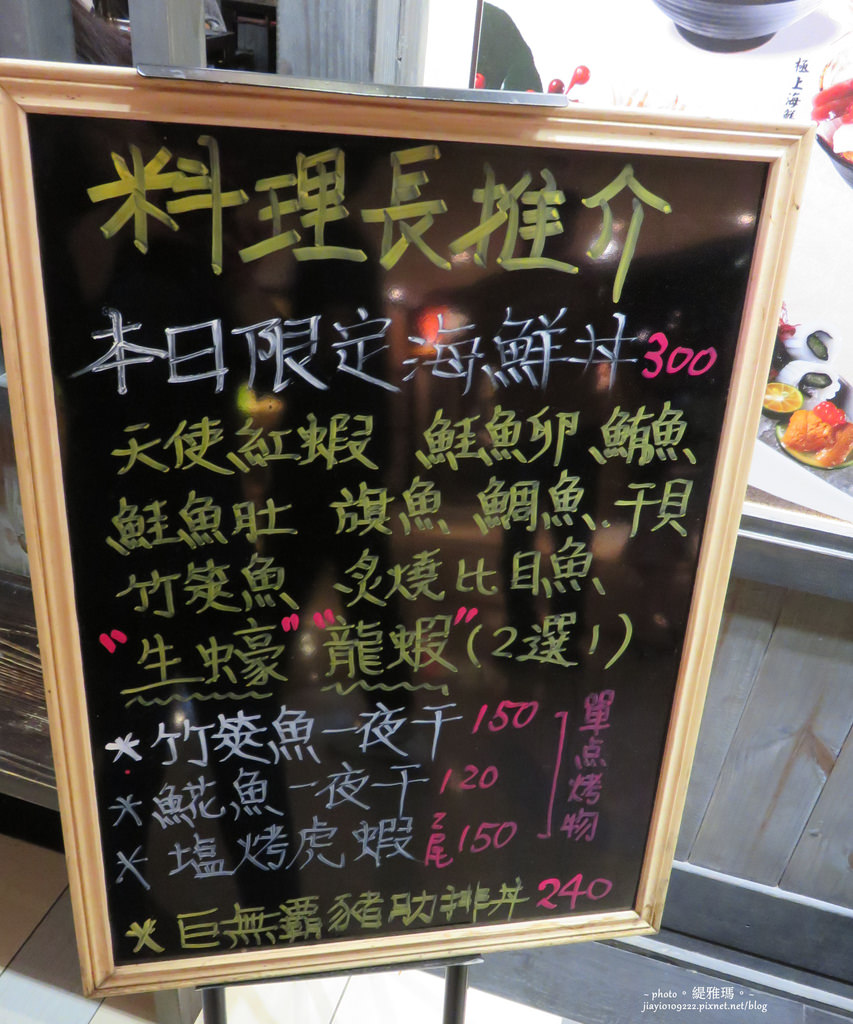 極上海鮮
料理長推介
本日限定海鮮丼300
天使紅蝦 鮭魚卵 鮪魚
鮭魚肚 旗魚 鯛魚.干貝
竹筴魚 炙燒比目魚
"生蠔" "龍蝦"(2選1)
*竹筴魚一夜干150
*魚花魚一夜干120
*塩烤虎蝦2尾150
單点烤物
*巨無霸豬肋排丼240
~ photo。緹雅瑪。~
jiayi0109222.pixnet.net/blog